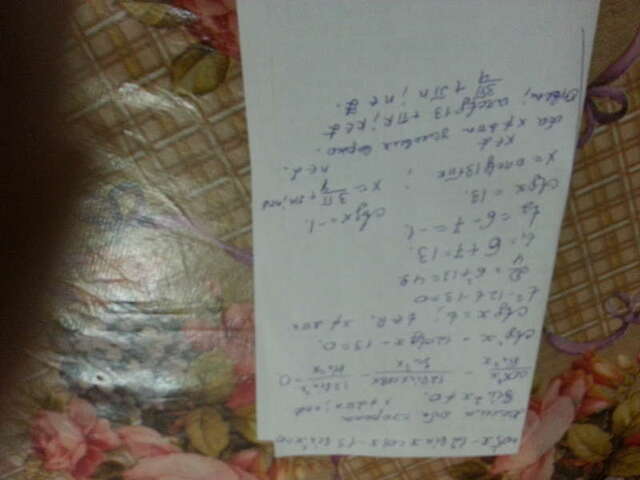 cos²x - 12 sin x cos x - 13 sin²x = 0
делим обе стороны
sin²x ≠ 0. x ≠ 2πn; n∈Z
cos²x/sin²x - 12sinxcosx/sin²x - 13sin²x/sin²x = 0.
ctg²x - 12ctgx - 13 = 0.
ctg x = t; t∈R. x ≠ 2πn
t² - 12t - 13 = 0
D/4 = 6² + 13 = 49.
t₁ = 6 + 7 = 13.
t₂ = 6 - 7 = -1.
ctg x = 13. ctg x = -1.
x = arcctg 13 + πk; x = 3π/4 + πn; n∈Z
k∈Z n∈Z.
оба x ≠ 2πn условия верно.
Ответ; arcctg 13 + πk; k∈Z
3π/4 + πn; n∈Z.